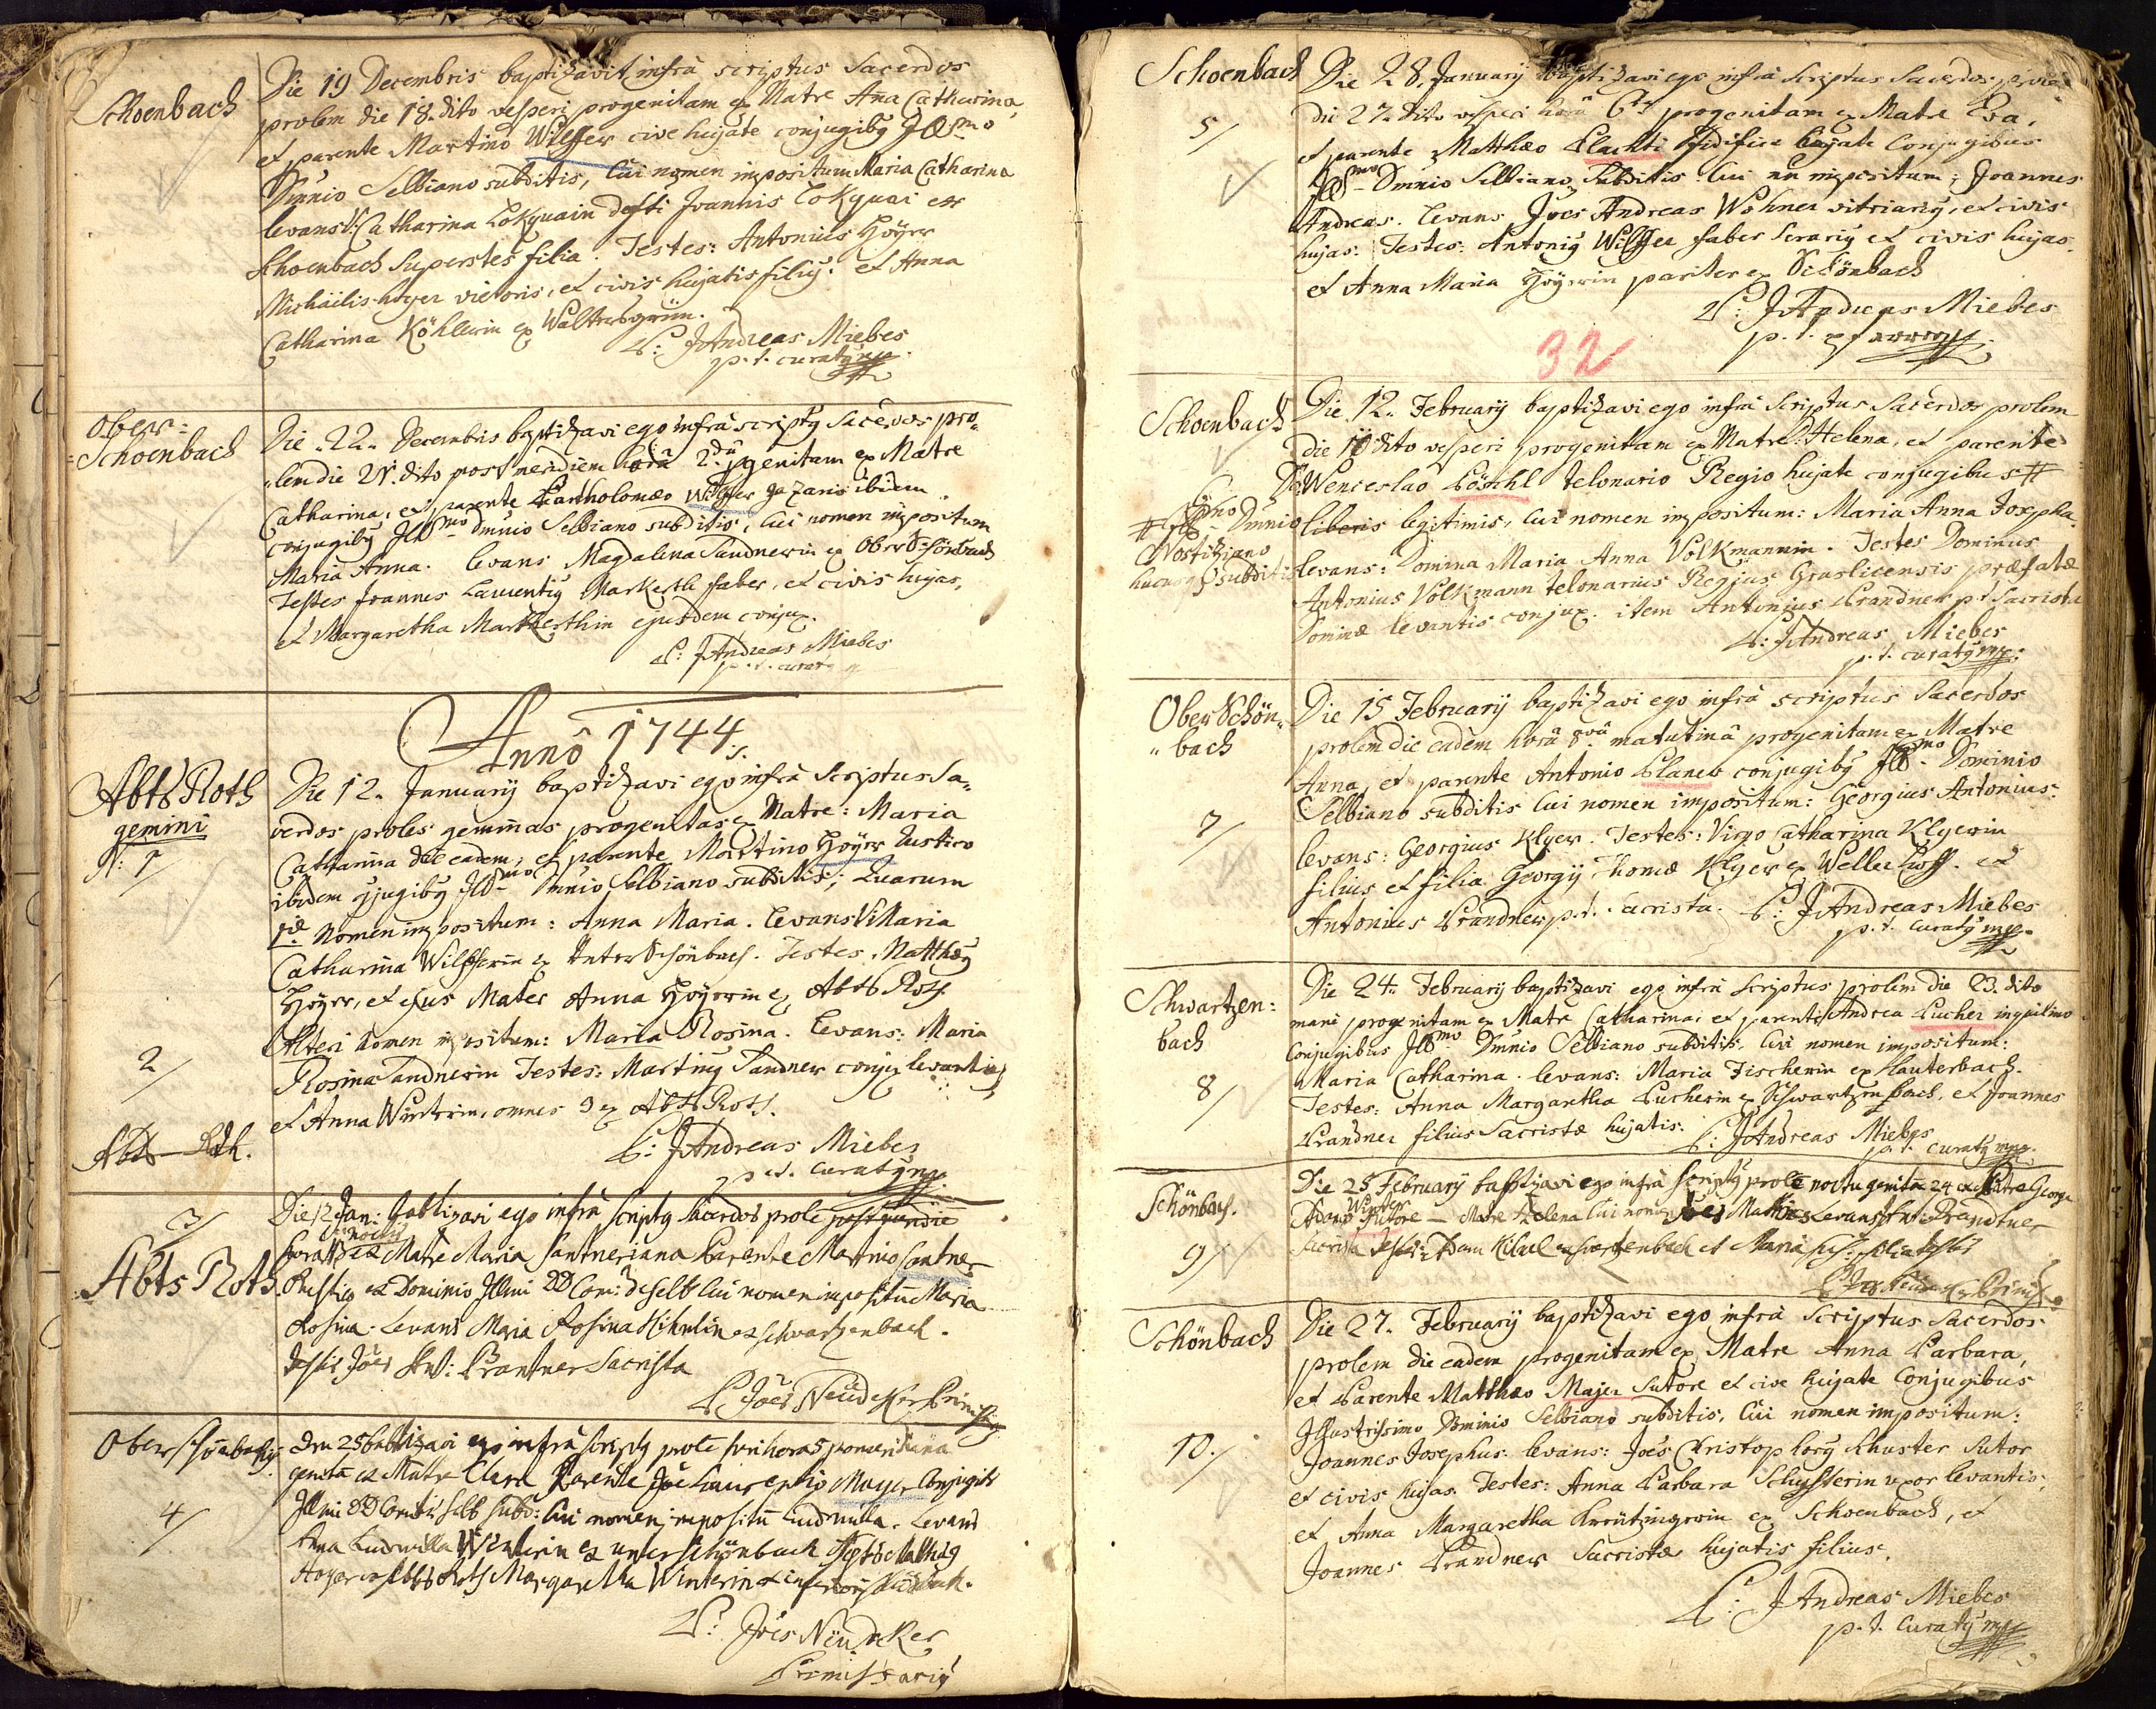 Schoenbach
Die 19 Decembris baptizavit infrà scriptus Sacerdos
prolem die 18. dito vesperi progenitam ex Matre Ana Catharina,
et parente Martino Wilffer cive hujate conjugibg Ill̄mo
Dmnio Selbiano subditis, Cui nomen impositum Maria Catharina
levans: Catharina Lokquain defti Joannis Lokquai ex
Schoenbach Superstes filia. Testes: Antonius Höyer
Michäilis höyer vietoris, et civis hujatis filiy. et Anna
Catharina Köhlerin ex Waltersgrün.
P: JAndreas Miebes
p. t. curatg mp.
Ober=
=Schoenbach
Die 22. Decembris baptizavi ego infrà scriptg Sacerdos pro,
lem die 21. dito post meridiem horâ 2dâ pgenitam ex Matre
Catharina, et parente Bartholomæo Wilffer ibidem
conjugibg Illmo Dmnio Selbiano subditis, Cui nomen impositum
Maria Anna. levans Magdalena Sandnerin ex Ober Schönbach
Testes Joannes Laurentig Markerth faber, et civis hujas,
et Margaretha Markherthin ejusdem conjux.
P: JAndreas Miebes
p. t. curatg
Annô 1744.
Abts Roth
gemini
N: 1
Die 12. January baptizavi ego infrà Scriptus Sa,
cerdos proles geminas progenitas ex Matre: Maria
Catharina die eadem, et parente Martino Höyer Rustico
ibidem cjugibg Illmo Dmnio Selbiano subditis; Quarum
1æ Nomen impositum: Anna Maria. Levans: Maria
Catharina Wilfferin ex Unter Schönbach. Testes. Matthæg
Höyer, et ejus Mater Anna Höyerin ex Abts Roth
2
Alteri nomen impositum: Maria Rosina. Levans: Maria
Rosina Sandnerin Testes: Marting Sandner conjux levantis
et Anna Würterin, omnes 3 ex Abts Roth.
P: JAndreas Miebes
p. t. curatg mp.
Abts-Roth.
3
Abts Roth
Die 12 Jan: Babtizavi ego infrà scriptg Sacerdos prole
hora noctis ex Matre Maria Santneriana Parente Martino Santner
Rustico ex Dominio Illmi DD Com: de Selb Cui nomen impositū Maria
Rosina. Levans Maria Rosina Hihnlin ex schwartzenbach.
Testis Jões Ant: Prantner Sacrista
P Jões Neüdeker Primissarig
Oberschönbachg
4
Den 25 babtizavi ego infrà scriptg prole sub horas pomeridiana
genitā ex Matre Clara, Parente Jõe Laurentio Mayer Conjugibs
Illmi DD Comitis Selb subd: Cui nomen impositū Ludmilla. Levans
Anna Ludmilla Winterin ex unterschönbach Testes Mathäg
Hoyer ex Abts Roth Margaretha Winterin ex inferiori Schönbach.
P: Jões Neudeker
Primissarig
Schoenbach
5
Die 28. January baptizavi ego infrà Scriptus Sacerdos prolem
die 27. dito vesperi horâ 6tâ progenitam ex Matre Eva,
et parente Matthæo Plachti Ædifice hujate Conjugibus
Illmo Dmnio Selbiano Subditis: Cui nn impositum: Joannes
Andreas. Levans Jões Andreas Wohner vitriarig, et civis
hujas: Testes: Antonig Wilffer faber Serarig et civis hujas.
et Anna Maria Höyerin pariter ex Schönbach
P: JAndreas Miebes
p. t.
32
Schoenbach
# Exmo Illmo Dmnio
Nostitziano
hucusq subditis
Die 12. February baptizavi ego infrà Scriptus Sacerdos prolem
die 10 dito vesperi progenitam ex Matre: Helena, et parente
Do Wenceslao Pöschl telonario Regio hujate conjugibus #
liberis legitimis, Cui nomen impositum: Maria Anna Josepha.
levans: Domina Maria Anna Volkmannin. Testes Dominus
Antonius Volkmann telonarius Regius Graslicensis præfatæ
Dominæ levantis conjux. item Antonius Prandner p. t. Sacrista
P: JAndreas Miebes
p. t. curatg mp.
Ober Schön,
,,bach
7
Die 15 February baptizavi ego infrà scriptus Sacerdos
prolem die eadem horâ 8vâ matutinâ progenitam ex Matre
Anna, et parente Antonio Planer conjugibg Illmo Dominio
Selbiano subditis Cui nomen impositum: Georgius Antonius:
levans: Georgius Klyer. Testes: Virgo Catharina Klyerin
filius et filia Georgy Thomæ Klyer ex Wellerhoff. et
Antonius Prandner p. t. Sacrista. P: JAndreas Miebes
p. t. Curatg mp.
Schwartzen:
bach
8
Die 24. February baptizavi ego infrà Scriptus prolem die 23. dito
mani progenitam ex Matre Catharina, et parente Andrea Pucher inquilino
Conjugibus Illmo Dmnio Selbiano subditis, Cui nomen impositum:
Maria Catharina. levans: Maria Fischerin ex Lauterbach.
Testes: Anna Margaretha Pucherin ex Schwartzenbach, et Joannes
Prandner filius Sacristæ hujatis. P: JAndreas Miebes
p. t. curatg mp.
Schönbach.
9
Die 25 February babtizavi ego infrà scriptg prole noctu genitā 24 ex Patre Georg
Adamo Winter Sutore — Matre Helena Cui nomen Jões Mathias Levans Ant: Prandtner
Sacrista Testes: Adam Hihnl ex swartzenbach et Maria
P Jões Neüdeker Primiss
Schönbach
10.
Die 27. February baptizavi ego infrà Scriptus Sacerdos
prolem die eadem progenitam ex Matre Anna Barbara,
et Parente Matthæo Majer Sutore et cive hujate Conjugibus
Illustrissimo Dominio Selbiano subditis, Cui nomen impositum:
Joannes Josephus. levans: Jões Christophorg Schuster Sutor
et civis hujas. Testes: Anna Barbara Schusterin uxor levantis,
et Anna Margaretha Kreützingerin ex Schoenbach, et
Joannes Prandner Sacristæ hujatis filius.
P: JAndreas Miebes
p. t. Curatg mp